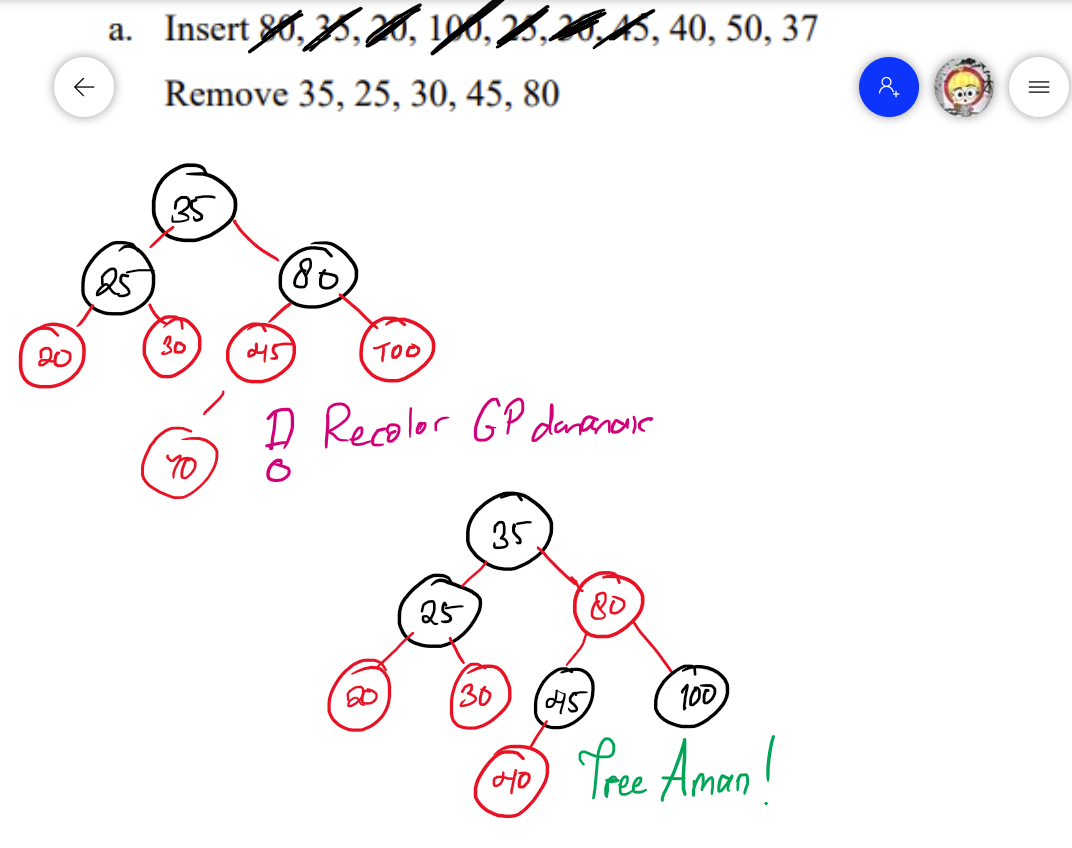 a. Insert 80, 35, 20, 100, 25, 30, 45, 40, 50, 37
Remove 35, 25, 30, 45, 80
35
25 80
20 30 45 100
40 Recolor GP
35
25 80
20 30 45 100
40 Tree Aman!